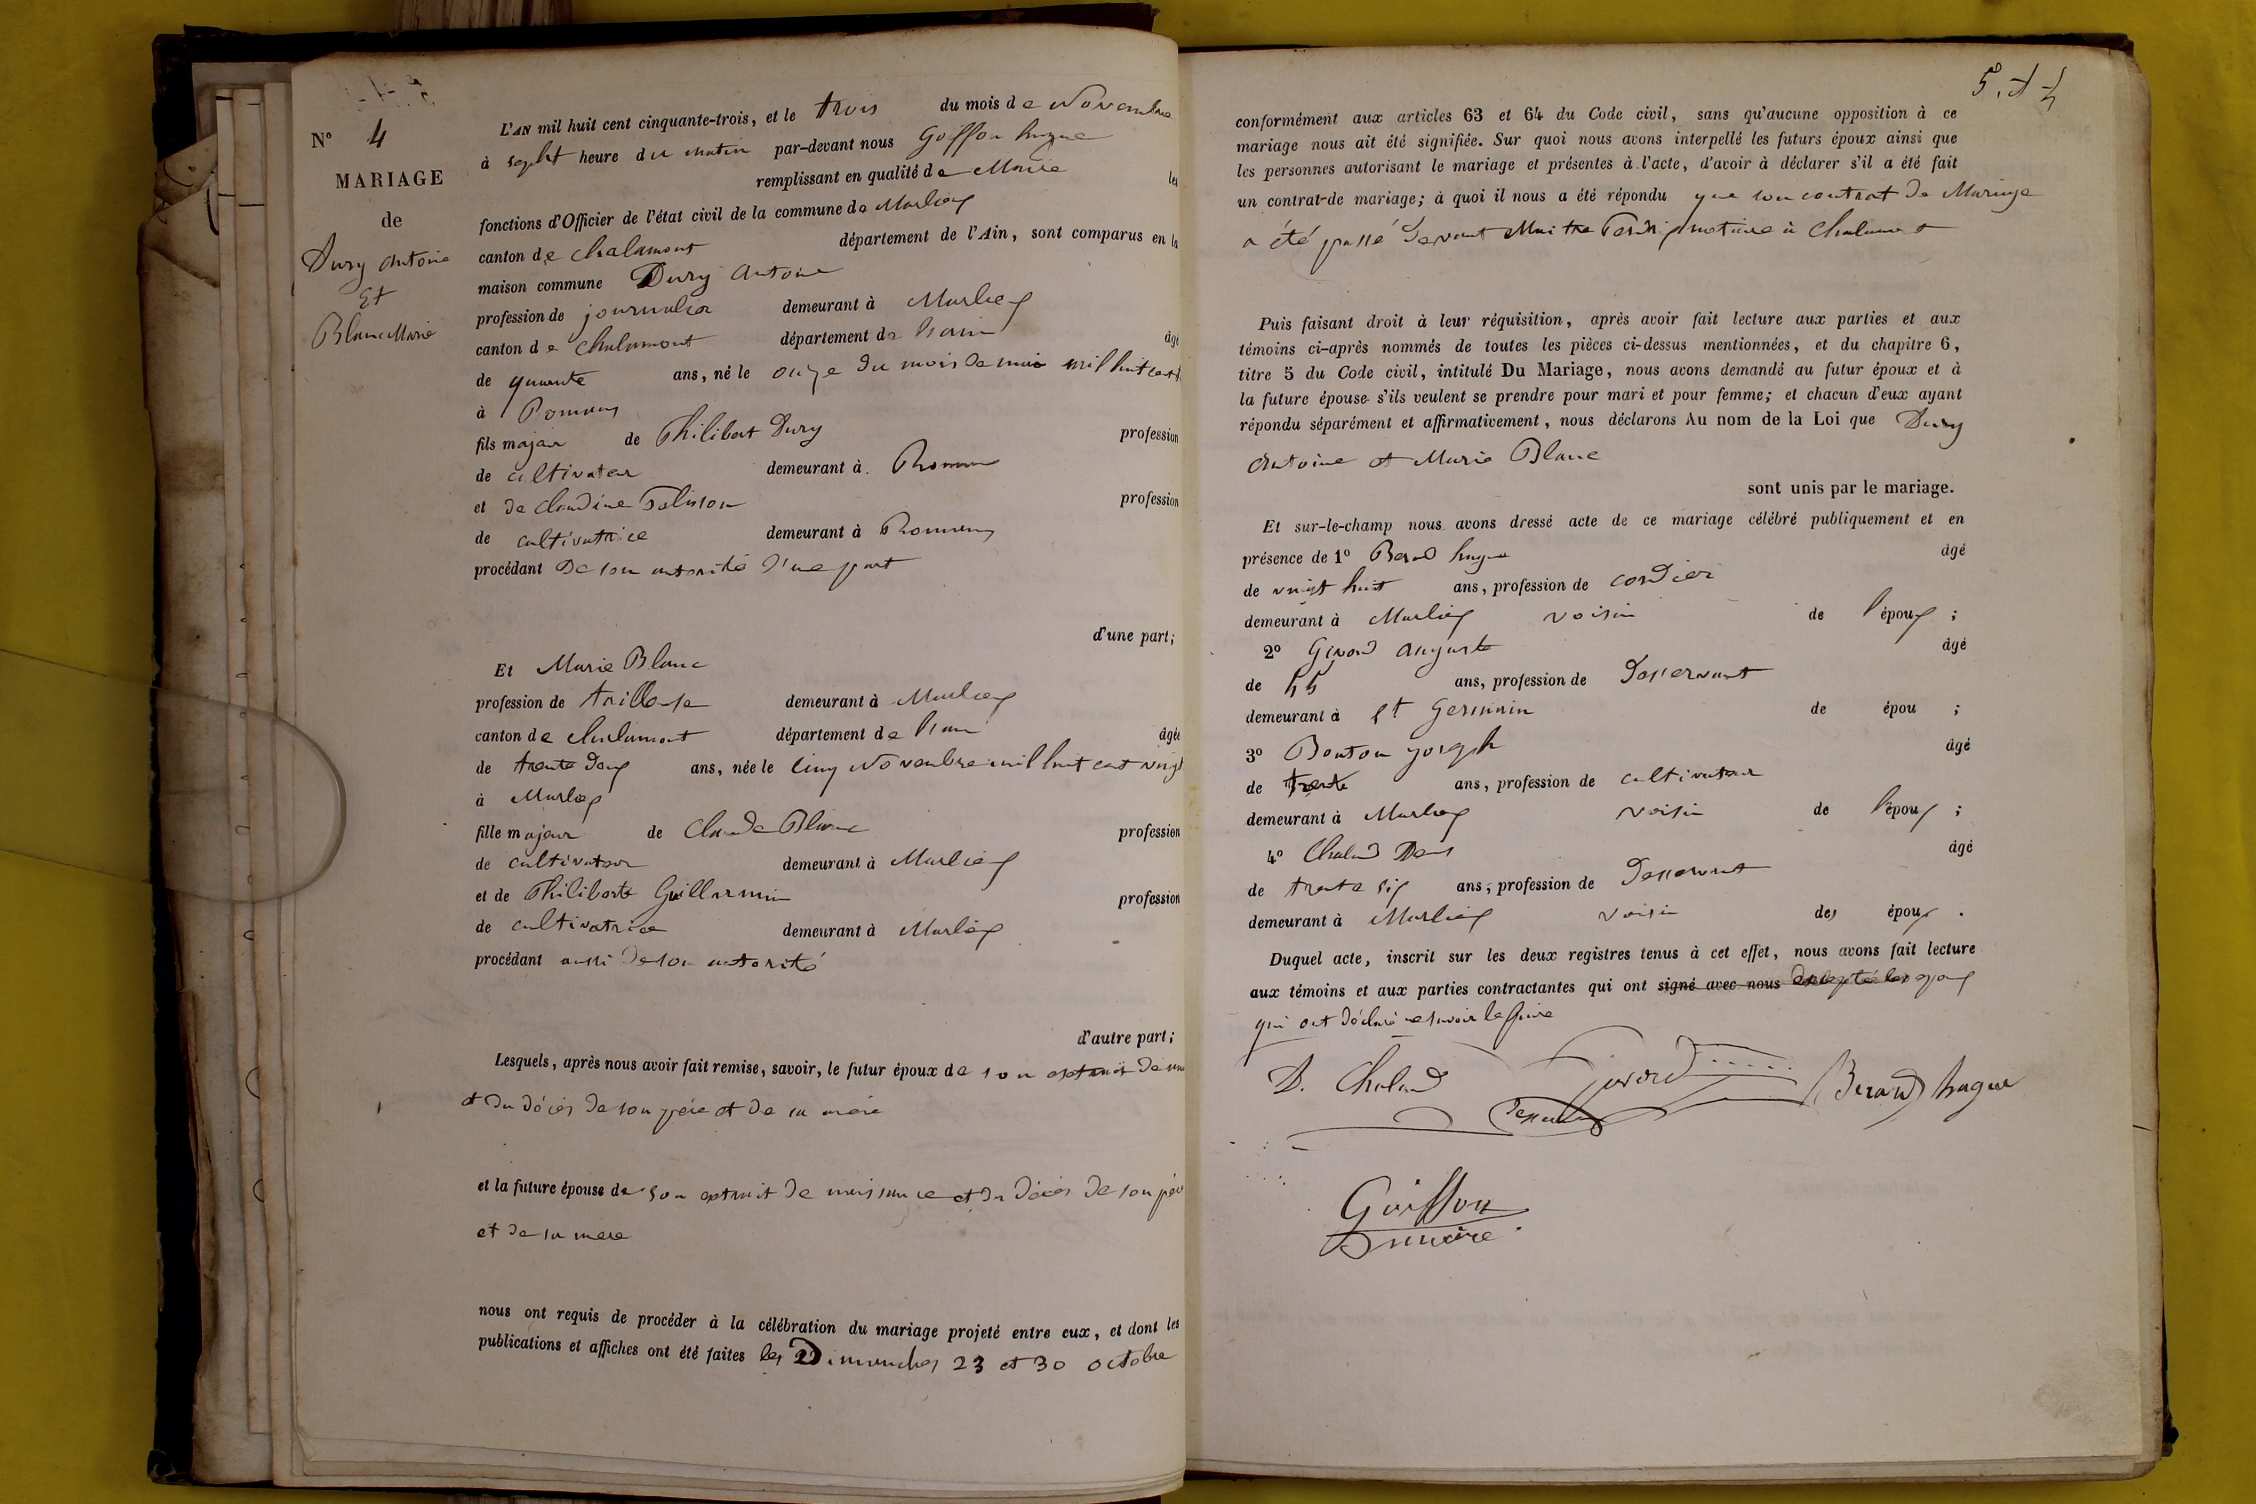 N° 4
MARIAGE
de
Dury Antoine
Et
Blanc Marie
L'AN mil huit cent cinquante-trois, et le trois du mois de Novembre
à sepht heure du matin par-devant nous Goiffon hugue
remplissant en qualité de Maire les
fonctions d'Officier de l'état civil de la commune de Marlieux
canton de chalamont département de l'Ain, sont comparus en la
maison commune Dury Antoine
profession de journalier demeurant à Marlieux
canton de chalamont département de lrain âgé
de quarante ans, né le onze du mois de mai mil huit cent
à Romans
fils majeur de Philibert Dury profession
de cultivateur demeurant à Romans
et de Claudine profession
de cultivatrice demeurant à Romans
procédant De son autorité d'une part
d'une part;
Et Marie Blanc
profession de demeurant à Marlieux
canton de chalamont département de âgée
de trente deux ans, née le cinq Novembre mil huit cent vingt
à Marlieux
fille majeur de Claude Blanc profession
de cultivateur demeurant à Marlieux
et de Philiberte Guillermin profession
de cultivatrice demeurant à Marlieux
procédant aussi de son autorité
d'autre part;
Lesquels, après nous avoir fait remise, savoir, le futur époux de son extrait de
et du décès de son père et de sa mère
et la future épouse de son extrait de naissance et du décès de son père
et de sa mere
nous ont requis de procéder à la célébration du mariage projeté entre eux, et dont les
publications et affiches ont été faites les Dimanches 23 et 30 octobre
conformément aux articles 63 et 64 du Code civil, sans qu'aucune opposition à ce
mariage nous ait été signifiée. Sur quoi nous avons interpellé les futurs époux ainsi que
les personnes autorisant le mariage et présentes à l'acte, d'avoir à déclarer s'il a été fait
un contrat de mariage; à quoi il nous a été répondu que son contrat de Mariage
a été passé devant Maitre notaire à Chalamont
Puis faisant droit à leur réquisition, après avoir fait lecture aux parties et aux
témoins ci-après nommés de toutes les pièces ci-dessus mentionnées, et du chapitre 6,
titre 5 du Code civil, intitulé Du Mariage, nous avons demandé au futur époux et à
la future épouse s'ils veulent se prendre pour mari et pour femme; et chacun d'eux ayant
répondu séparément et affirmativement, nous déclarons Au nom de la Loi que Dury
Antoine et Marie Blanc
sont unis par le mariage.
Et sur-le-champ nous avons dressé acte de ce mariage célébré publiquement et en
présence de 1° Berard hugue âgé
de vingt huit ans, profession de cordier
demeurant à Marlieux voisin de l'époux;
2° Girard Auguste âgé
de 55 ans, profession de Desservant
demeurant à St Germain de épou;
3° Bouton joseph âgé
de trente ans, profession de cultivateur
demeurant à Marlieux voisin de l'époux;
4° Chaland Denis âgé
de trente six ans, profession de Desservant
demeurant à Marlieux voisin des époux.
Duquel acte, inscrit sur les deux registres tenus à cet effet, nous avons fait lecture
aux témoins et aux parties contractantes qui ont signé avec nous excepté les époux
qui ont déclaré ne savoir le faire
D. Chaland Girard Berard hugue
Desservant
Goiffon
maire